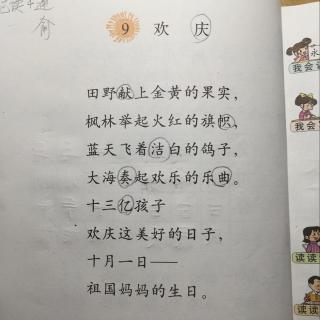 9 欢 庆
田野献上金黄的果实，
枫林举起火红的旗帜，
蓝天飞着洁白的鸽子，
大海奏起欢乐的乐曲。
十三亿孩子
欢庆这美好的日子，
十月一日——
祖国妈妈的生日。
我会
我会
读读
读读